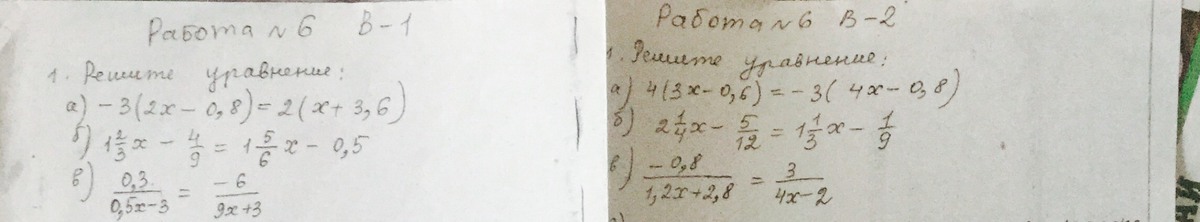 Работа №6 В-1
1. Решите уравнение:
а) -3(2x - 0,8) = 2(x + 3,6)
б) 1 2/3 x - 4/9 = 1 5/6 x - 0,5
в) 0,3/(0,5x-3) = -6/(9x+3)
Работа №6 В-2
1. Решите уравнение:
а) 4(3x-0,6) = -3(4x-0,8)
б) 2 1/4 x - 5/12 = 1 1/3 x - 1/9
в) -0,8/(1,2x+2,8) = 3/(4x-2)